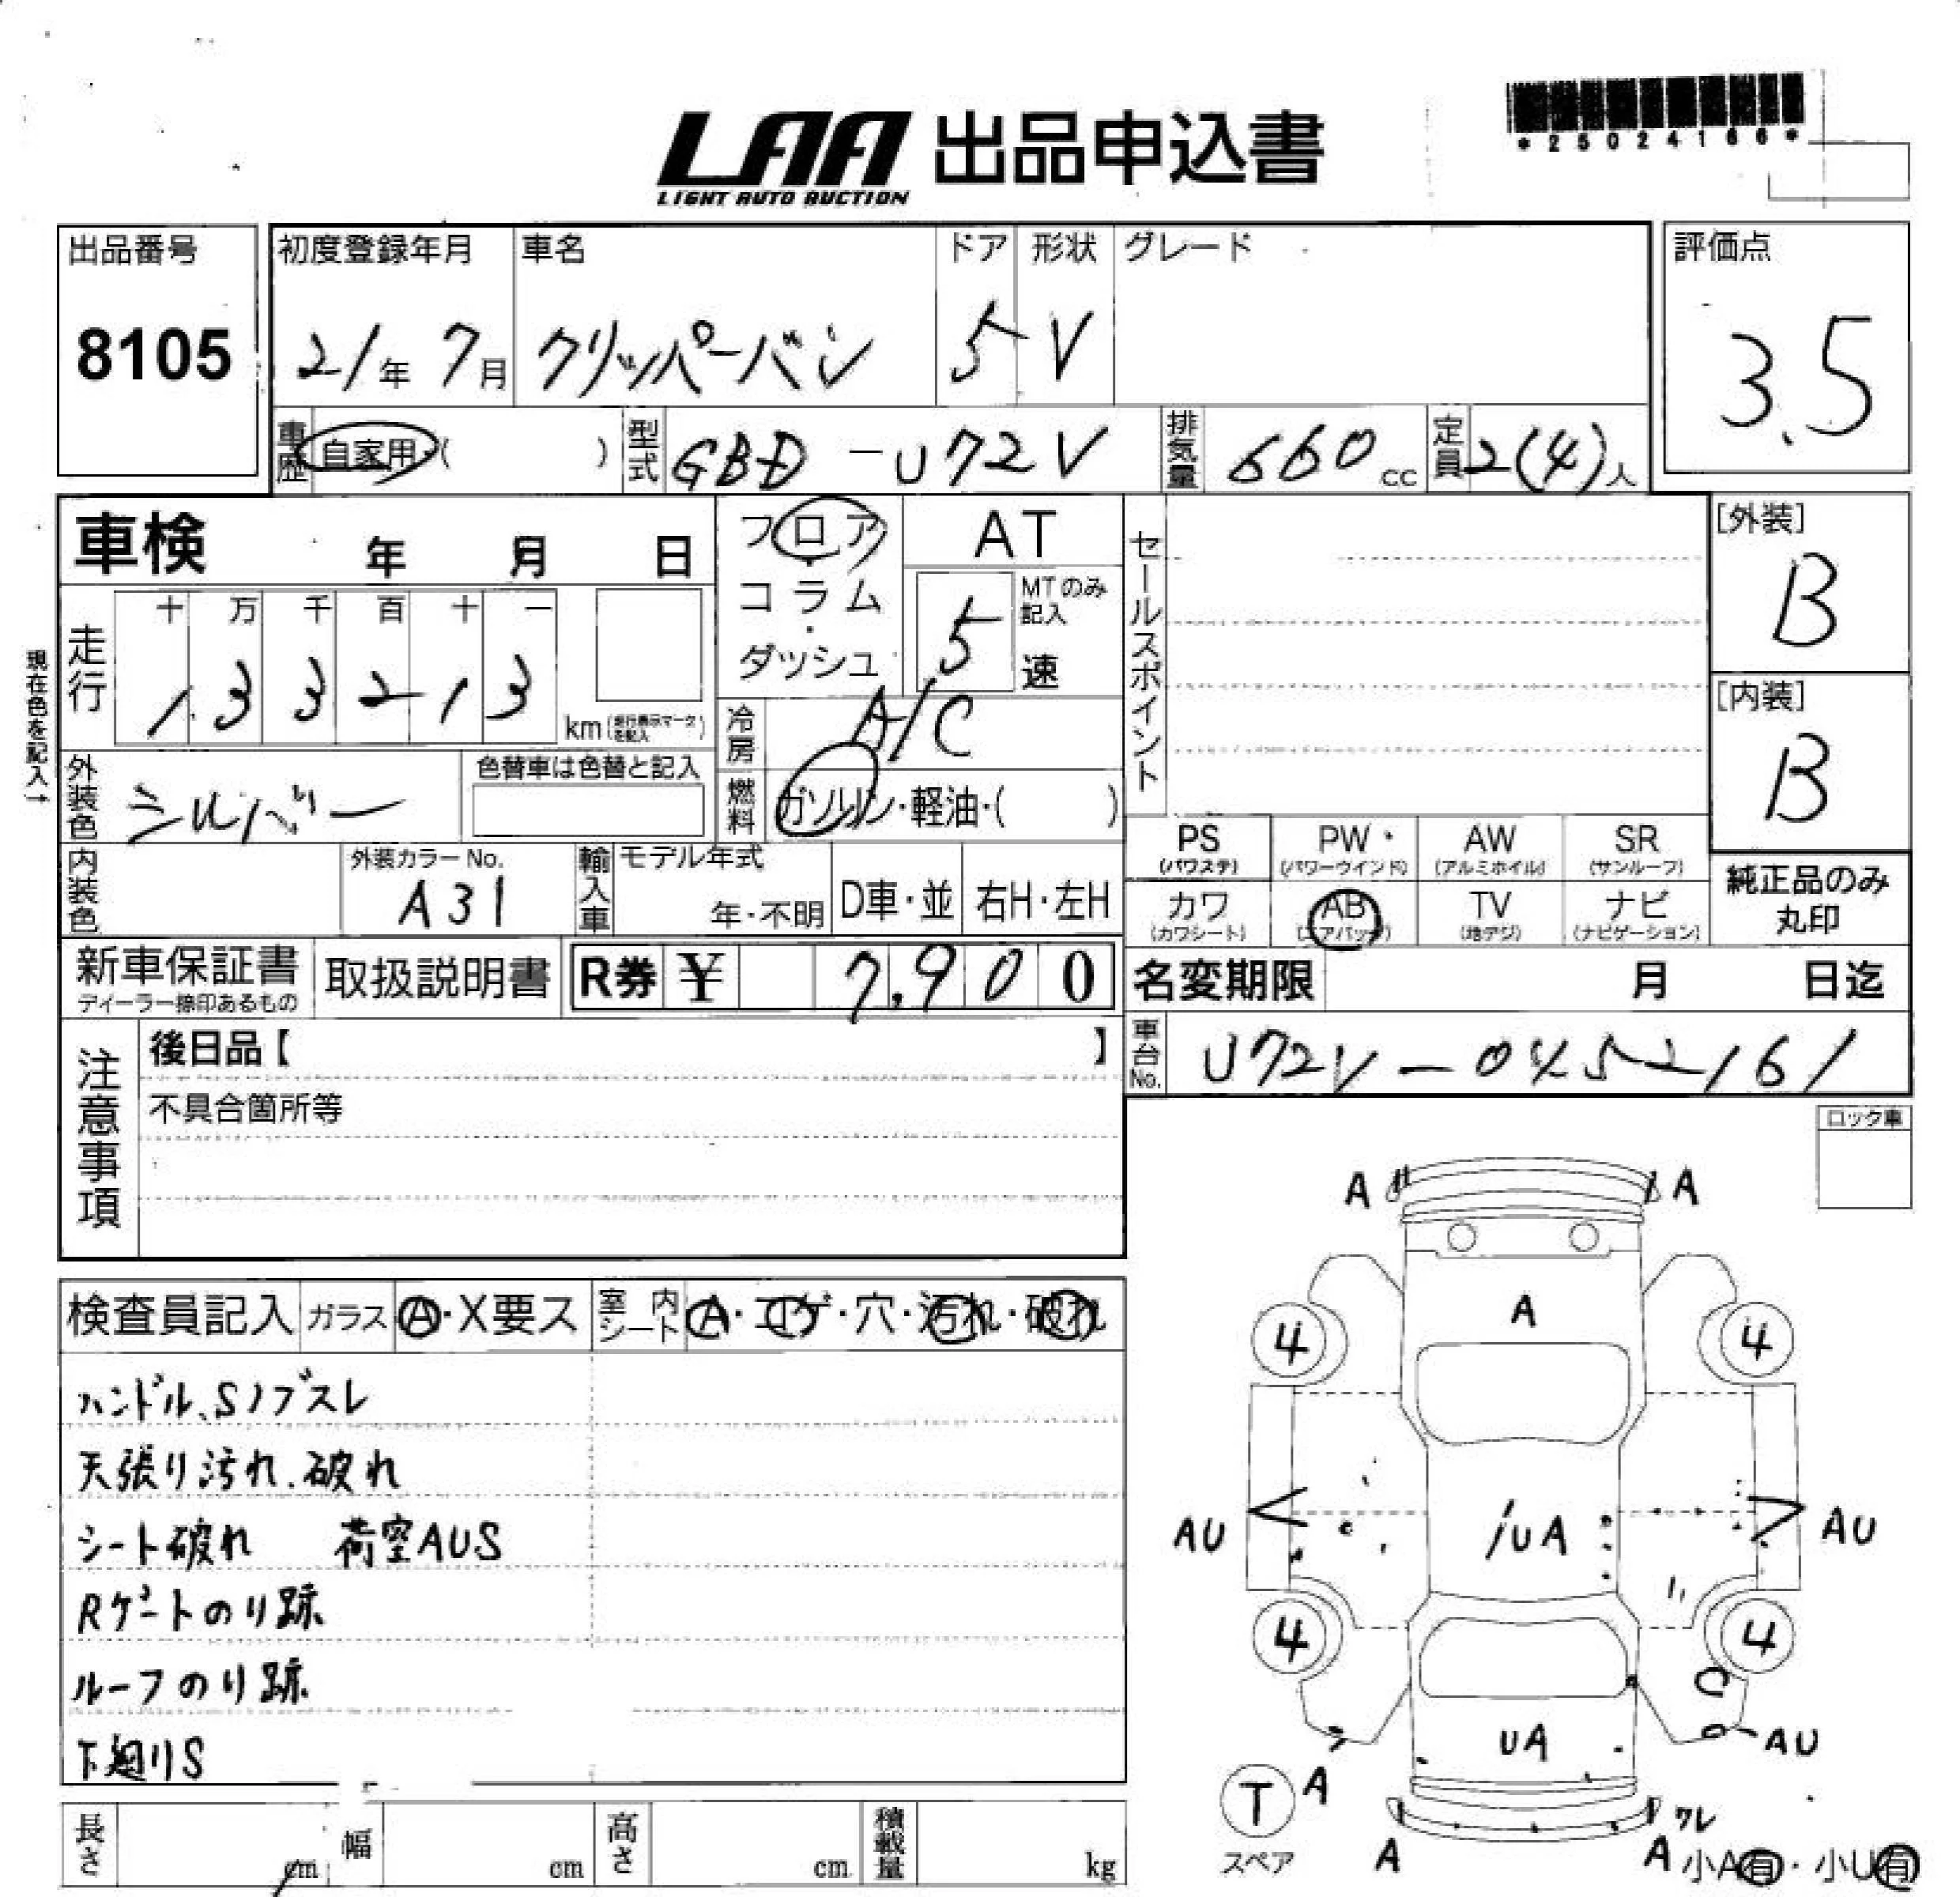 LAA 出品申込書
LIGHT AUTO AUCTION
*25024166*
出品番号
8105
初度登録年月
21年 7月
車名
クリッパーバン
ドア
5
形状
V
グレード
評価点
3.5
車歴 自家用・( )
型式 GBD-U72V
排気量 660 cc
定員 2(4)人
車検 年 月 日
フロア・コラム・ダッシュ
AT
5 速
MTのみ記入
セールスポイント
[外装]
B
現在色を記入→
走行
十 万 千 百 十 一
1 3 3 2 1 3
km(走行表示マークを記入)
冷房 A/C
[内装]
B
外装色 シルバー
色替車は色替と記入
燃料 ガソリン・軽油・( )
PS (パワステ)
PW (パワーウインド)
AW (アルミホイル)
SR (サンルーフ)
内装色
外装カラーNo.
A31
輸入車
モデル年式
年・不明
D車・並
右H・左H
カワ (カワシート)
AB (エアバッグ)
TV (地デジ)
ナビ (ナビゲーション)
純正品のみ
丸印
新車保証書
ディーラー捺印あるもの
取扱説明書
R券 ¥ 7,900
名変期限 月 日迄
車台No. U72V-0452161
注意事項
後日品【 】
不具合箇所等
ロック車
検査員記入 ガラス A・X要ス 室内シート A・コゲ・穴・汚れ・破れ
ハンドル、Sノブスレ
天張り汚れ、破れ
シート破れ 荷空AUS
Rゲートのり跡
ルーフのり跡
下廻りS
長さ cm 幅 cm 高さ cm 積載量 kg
A A
A
4 4
AU iUA AU
4 4
UA
AU
T A
スペア
ワレ
A A
小A有・小U有